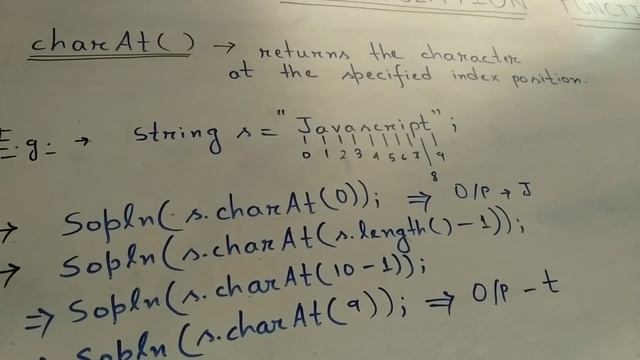 FUNCTI
charAt() → returns the character
at the specified index position.
E.g:- → string s = "Javascript";
0 1 2 3 4 5 6 7 8 9
→ Sopln(s.charAt(0)); ⇒ O/P → J
→ Sopln(s.charAt(s.length()-1));
⇒ Sopln(s.charAt(10-1));
Sopln(s.charAt(9)); ⇒ O/P - t